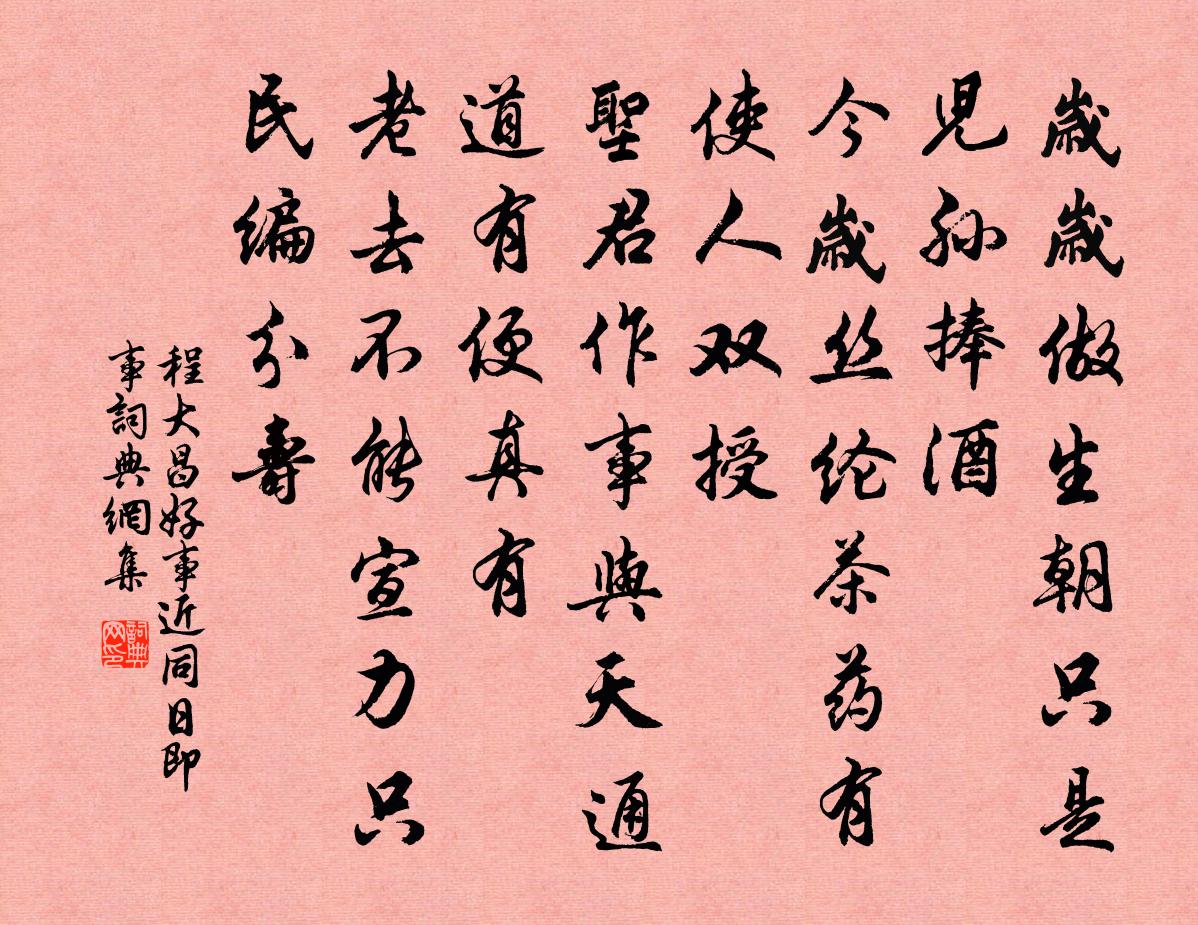 歲歲做生朝只是
児孫捧酒
今歲丝纶茶药有
使人双授
聖君作事與天通
道有便真有
老去不能宣力只
民编分壽
程大昌好事近同日即
事詞典網集
詞典
网印